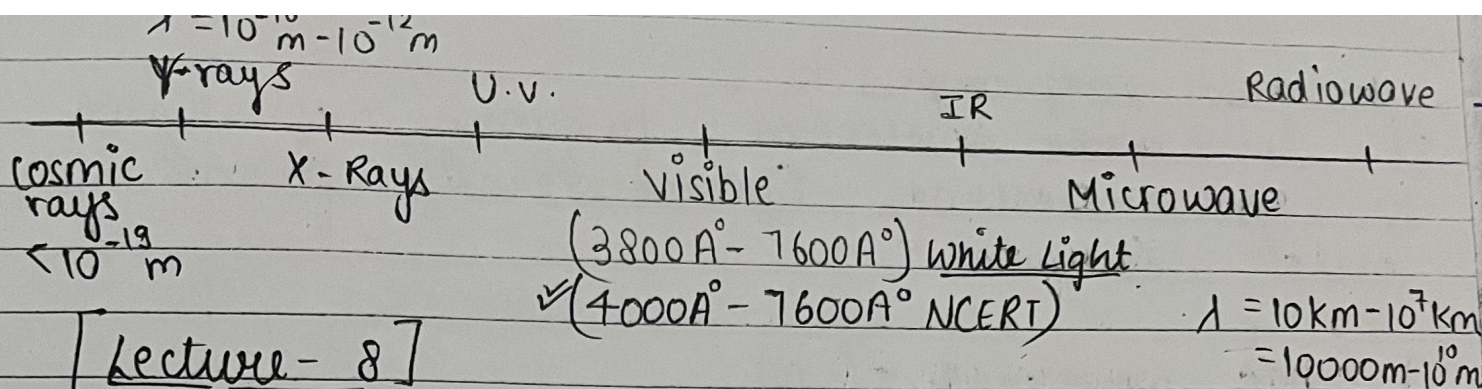 λ = 10⁻¹⁰ m - 10⁻¹² m
γ-rays
U.V.
IR
Radiowave
cosmic rays
X-Rays
visible
Microwave
<10⁻¹⁹ m
(3800A° - 7600A°) white Light
✓(4000A° - 7600A° NCERT)
λ = 10km - 10⁷km
= 10000m - 10¹⁰m
[Lecture - 8]